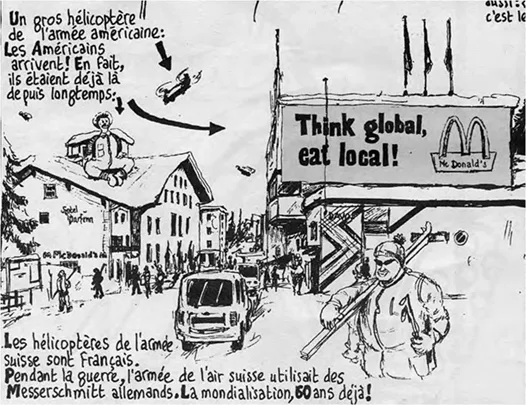 Un gros hélicoptère
de l'armée américaine:
Les Américains
arrivent! En fait,
ils étaient déjà là
depuis longtemps:
c'est le
Think global,
eat local!
Mc Donald's
Hotel
McDonald's
Les hélicoptères de l'armée
suisse sont français.
Pendant la guerre, l'armée de l'air suisse utilisait des
Messerschmitt allemands. La mondialisation, 50 ans déjà!